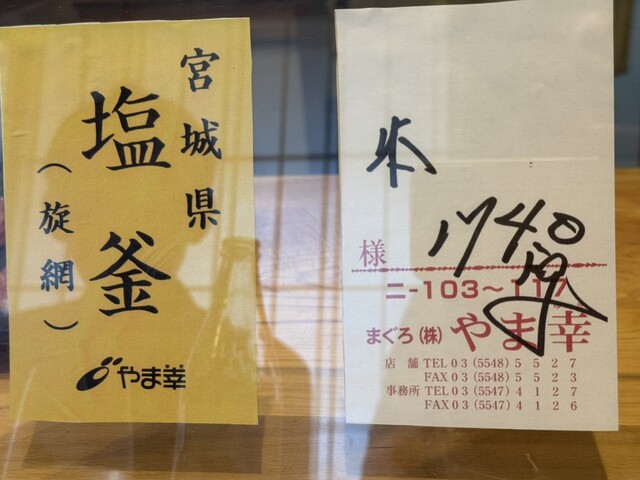 宮城県
塩釜
（旋網）
やま幸
1740
様
二-103〜117
まぐろ(株)やま幸
店舗 TEL 03(5548)5527
FAX 03(5548)5523
事務所 TEL 03(5547)4127
FAX 03(5547)4126